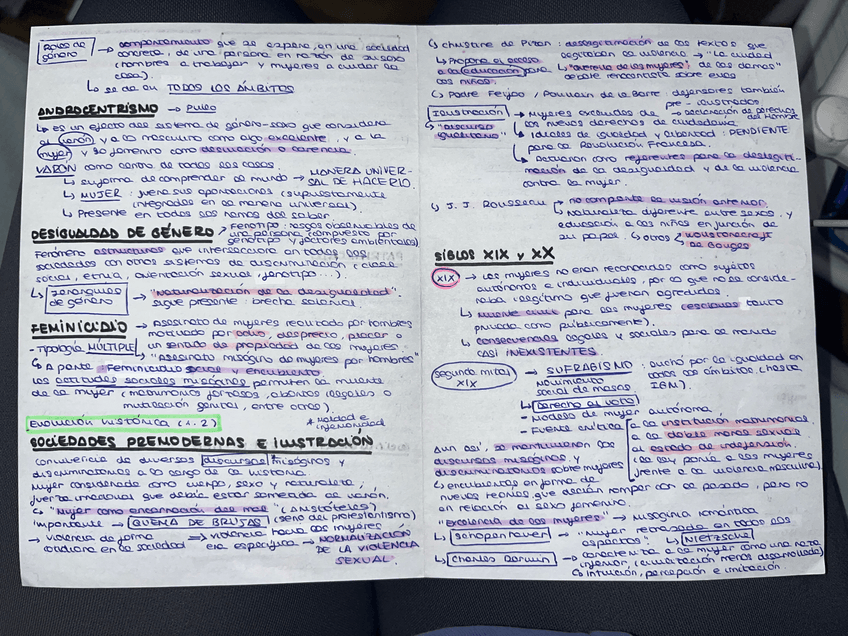 Roles de género → comportamiento que se espera, en una sociedad
concreta, de una persona en razón de su sexo
(hombres a trabajar y mujeres a cuidar la
casa).
↳ se da en TODOS LOS ÁMBITOS
ANDROCENTRISMO → Puleo
↳ es un efecto del sistema de género-sexo que considera
al varón y a lo masculino como algo excelente, y a la
mujer y lo femenino como desviación o carencia.
VARÓN como centro de todas las cosas.
↳ su forma de comprender el mundo → MANERA UNIVER-
SAL DE HACERLO.
↳ MUJER: fuera sus aportaciones (supuestamente
integradas en la manera universal).
↳ Presente en todas las ramas del saber.
DESIGUALDAD DE GÉNERO
Fenotipo: rasgos observables de
una persona, compuesto por
genotipo y factores ambientales)
Fenómeno estructural que intersecciona en todas las
sociedades con otros sistemas de discriminación (clase
social, etnia, orientación sexual, genotipo...).
↳ Jerarquías de género → "Naturalización de la desigualdad".
sigue presente: brecha salarial.
FEMINICIDIO → Asesinato de mujeres realizado por hombres
motivado por odio, desprecio, placer o
un sentido de propiedad de las mujeres.
- Tipología MÚLTIPLE
↳ "Asesinato misógino de mujeres por hombres"
↳ A parte: Feminicidio social y encubierto
las actitudes sociales misóginas permiten la muerte
de la mujer (matrimonios forzosos, abortos ilegales o
mutilación genital, entre otros).
EVOLUCIÓN HISTÓRICA (1.2)
* maldad e
inferioridad
SOCIEDADES PREMODERNAS E ILUSTRACIÓN
Convivencia de diversos discursos* misóginos y
discriminatorios a lo largo de la historia.
Mujer considerada como cuerpo, sexo y naturaleza,
fuerza irracional que debía estar sometida al varón.
↳ "Mujer como encarnación del mal" (Aristóteles)
importante → QUEMA DE BRUJAS (seno del protestantismo)
→ violencia de forma
cotidiana en la sociedad
⇒ violencia hacia las mujeres
era específica → NORMALIZACIÓN
DE LA VIOLENCIA
SEXUAL.
↳ Christine de Pizan: deslegitimación de los textos que
legitiman la violencia → "La ciudad
de las damas"
↳ Propone el acceso
a la educación para
las niñas.
"querella de las mujeres";
debate renacentista sobre ellas
↳ Padre Feijoo, Poullain de la Barre defensores también
pre-ilustrados
Ilustración → Mujeres excluidas de
los nuevos derechos de ciudadanía
→ Declaración de derechos
del Hombre
↳ "discurso
igualitario"
↳ Ideales de igualdad y libertad: PENDIENTE
para la Revolución Francesa.
↳ Actuaron como referentes para la deslegiti-
mación de la desigualdad y de la violencia
contra la mujer.
↳ J.J. Rousseau
no comparte la visión anterior.
Naturaleza diferente entre sexos, y
educación a los niños en función de
su papel.
↳ otros
Wollstonecraft
de Gouges
SIGLOS XIX y XX
XIX → Las mujeres no eran reconocidas como sujetos
autónomos e individuales, por lo que no se conside-
raba ilegítimo que fueran agredidas.
↳ Muerte civil para las mujeres (esclavas tanto
privada como públicamente).
↳ consecuencias legales y sociales para el marido
CASI INEXISTENTES.
segunda mitad
XIX
→ SUFRAGISMO: lucha por la igualdad en
todos los ámbitos (hasta
IGM).
movimiento
social de masas
↳ Derecho al voto
- Modelo de mujer autónoma
- Fuente crítica
a la institución matrimonial
a la doble moral sexual
al estado de indefensión
(la ley ponía a las mujeres
frente a la violencia masculina).
Aun así, se mantuvieron los
discursos misóginos y
discriminatorios sobre mujeres
↳ encubiertas en forma de
nuevas teorías que decían romper con el pasado, pero no
en relación al sexo femenino.
"Excelencia de las mujeres" → Misoginia romántica
↳ Schopenhauer → "Mujer retrasada en todos los
aspectos".
↳ NIETZSCHE
↳ Charles Darwin → caracteriza a la mujer como una raza
inferior, (civilización menos desarrollada)
↳ intuición, percepción e imitación.